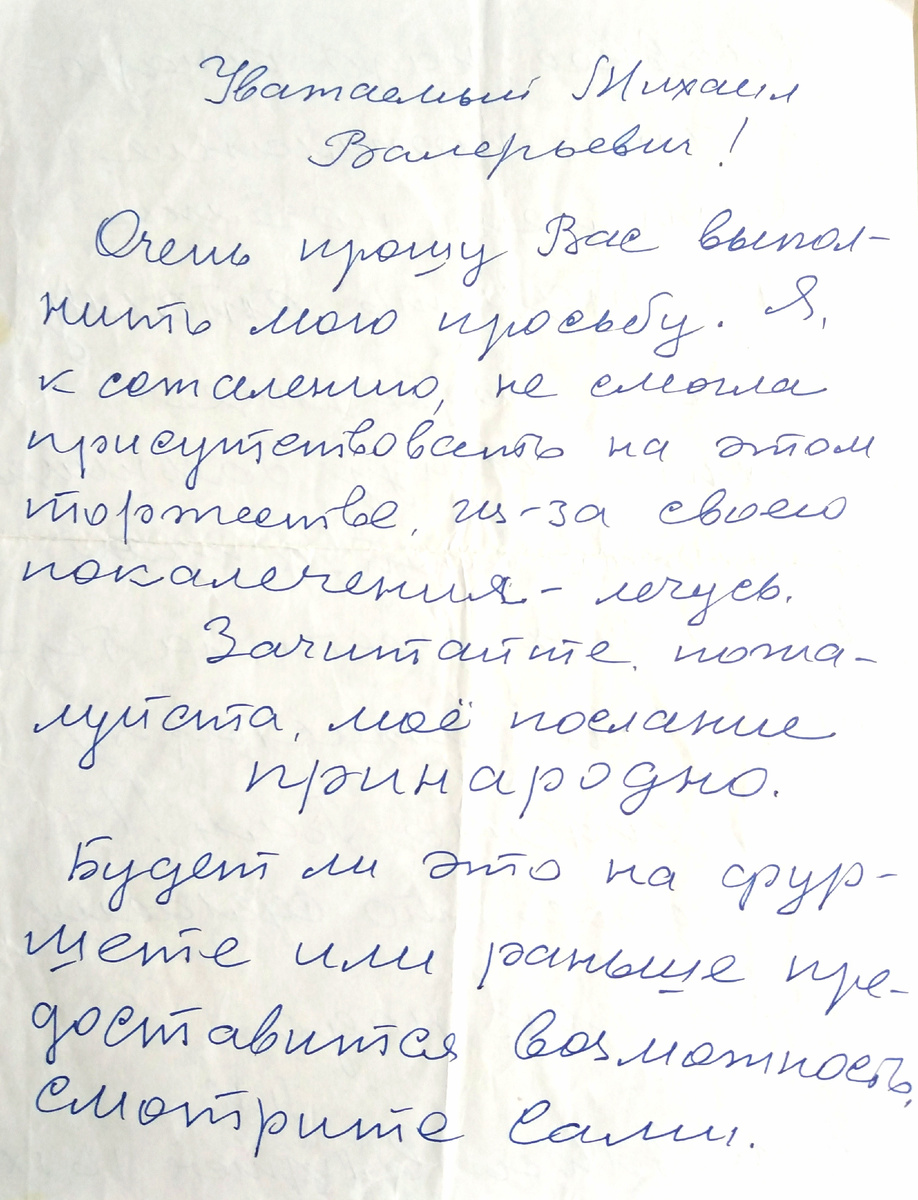 Уважаемый Михаил
Валерьевич!
Очень прошу Вас выпол-
нить мою просьбу. Я,
к сожалению, не смогла
присутствовать на этом
торжестве, из-за своего
покалечения - лечусь.
Зачитайте, пожа-
луйста, моё послание
принародно.
Будет ли это на фур-
шете или раньше пре-
доставится возможность,
смотрите сами.